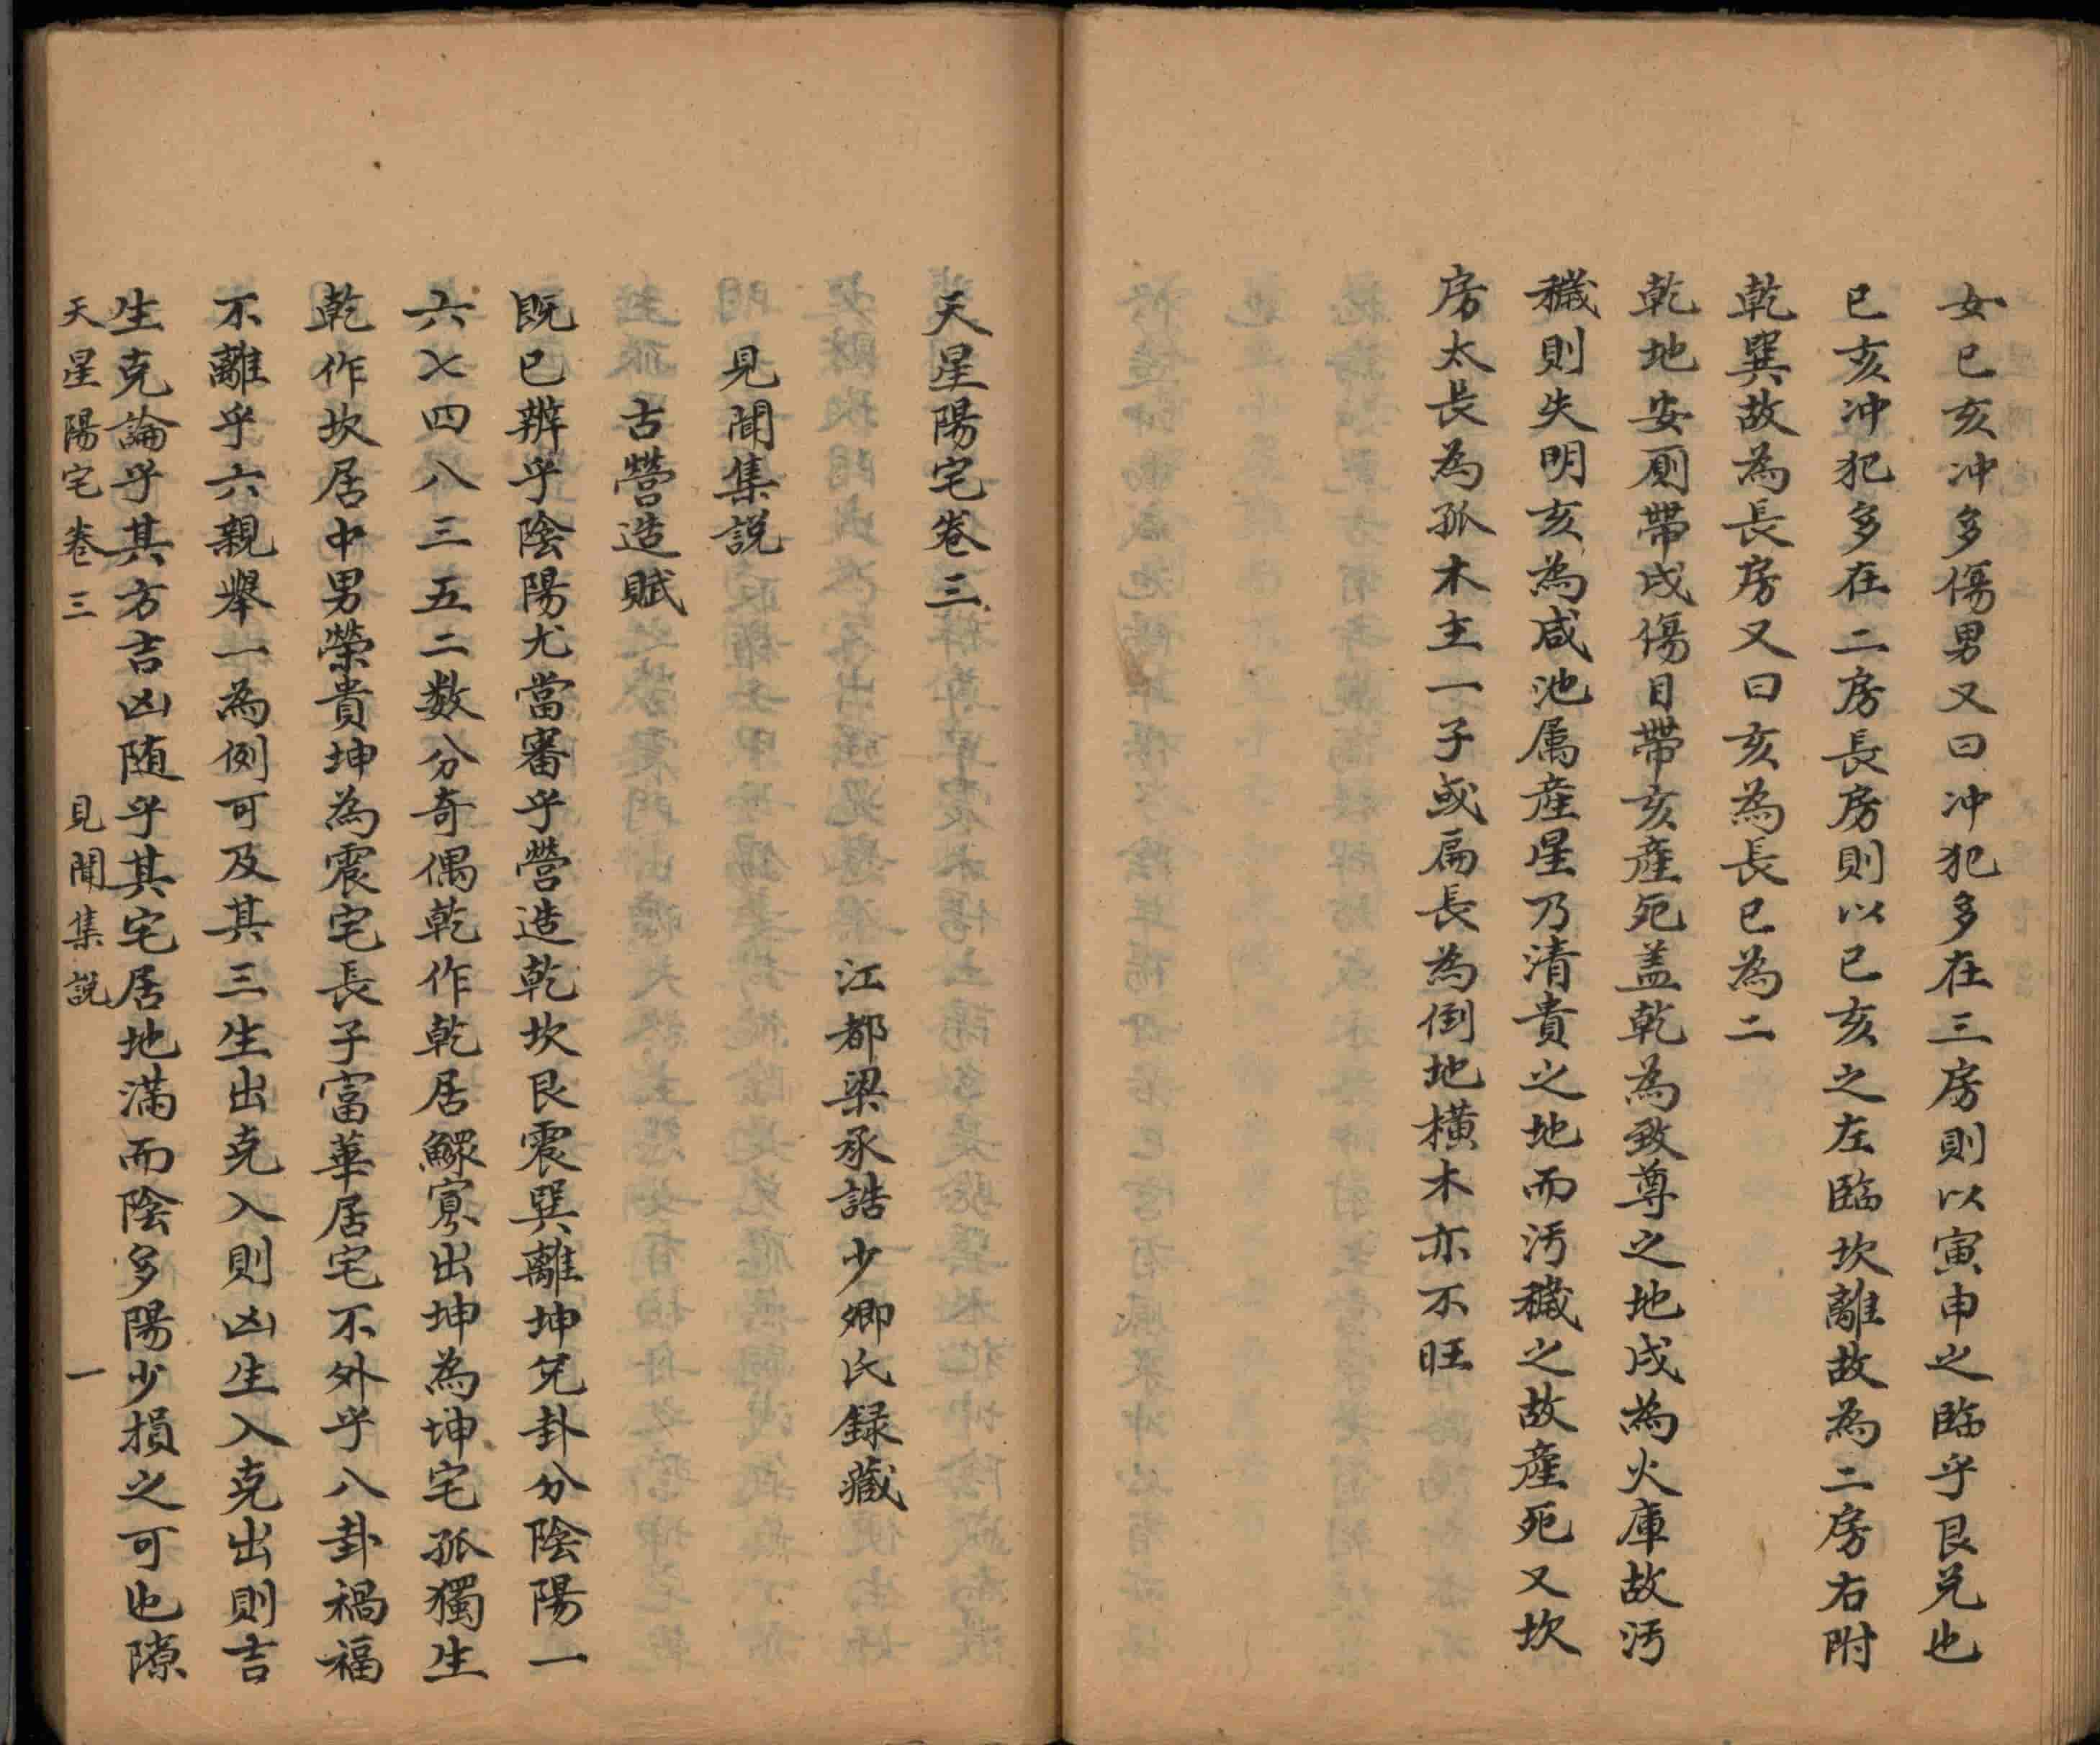 女巳亥冲多傷男又曰冲犯多在三房則以寅申之臨乎艮兑也
巳亥冲犯多在二房長房則以巳亥之左臨坎離故為二房右附
乾巽故為長房又曰亥為長巳為二
乾地安厠帶戌傷目帶亥産死盖乾為致尊之地戌為火庫故汚
穢則失明亥為咸池属産星乃清貴之地而汚穢之故産死又坎
房太長為孤木主一子或扁長為倒地橫木亦不旺
天星陽宅卷三
江都梁承誥少卿氏録藏
見聞集説
古營造賦
既已辨乎陰陽尤當審乎營造乾坎艮震巽離坤兑卦分陰陽一
六七四八三五二数分奇偶乾作乾居鰥寡出坤為坤宅孤獨生
乾作坎居中男榮貴坤為震宅長子富華居宅不外乎八卦禍福
不離乎六親舉一為例可及其三生出克入則凶生入克出則吉
生克論乎其方吉凶随乎其宅居地滿而陰多陽少損之可也隙
天星陽宅卷三 見聞集説 一